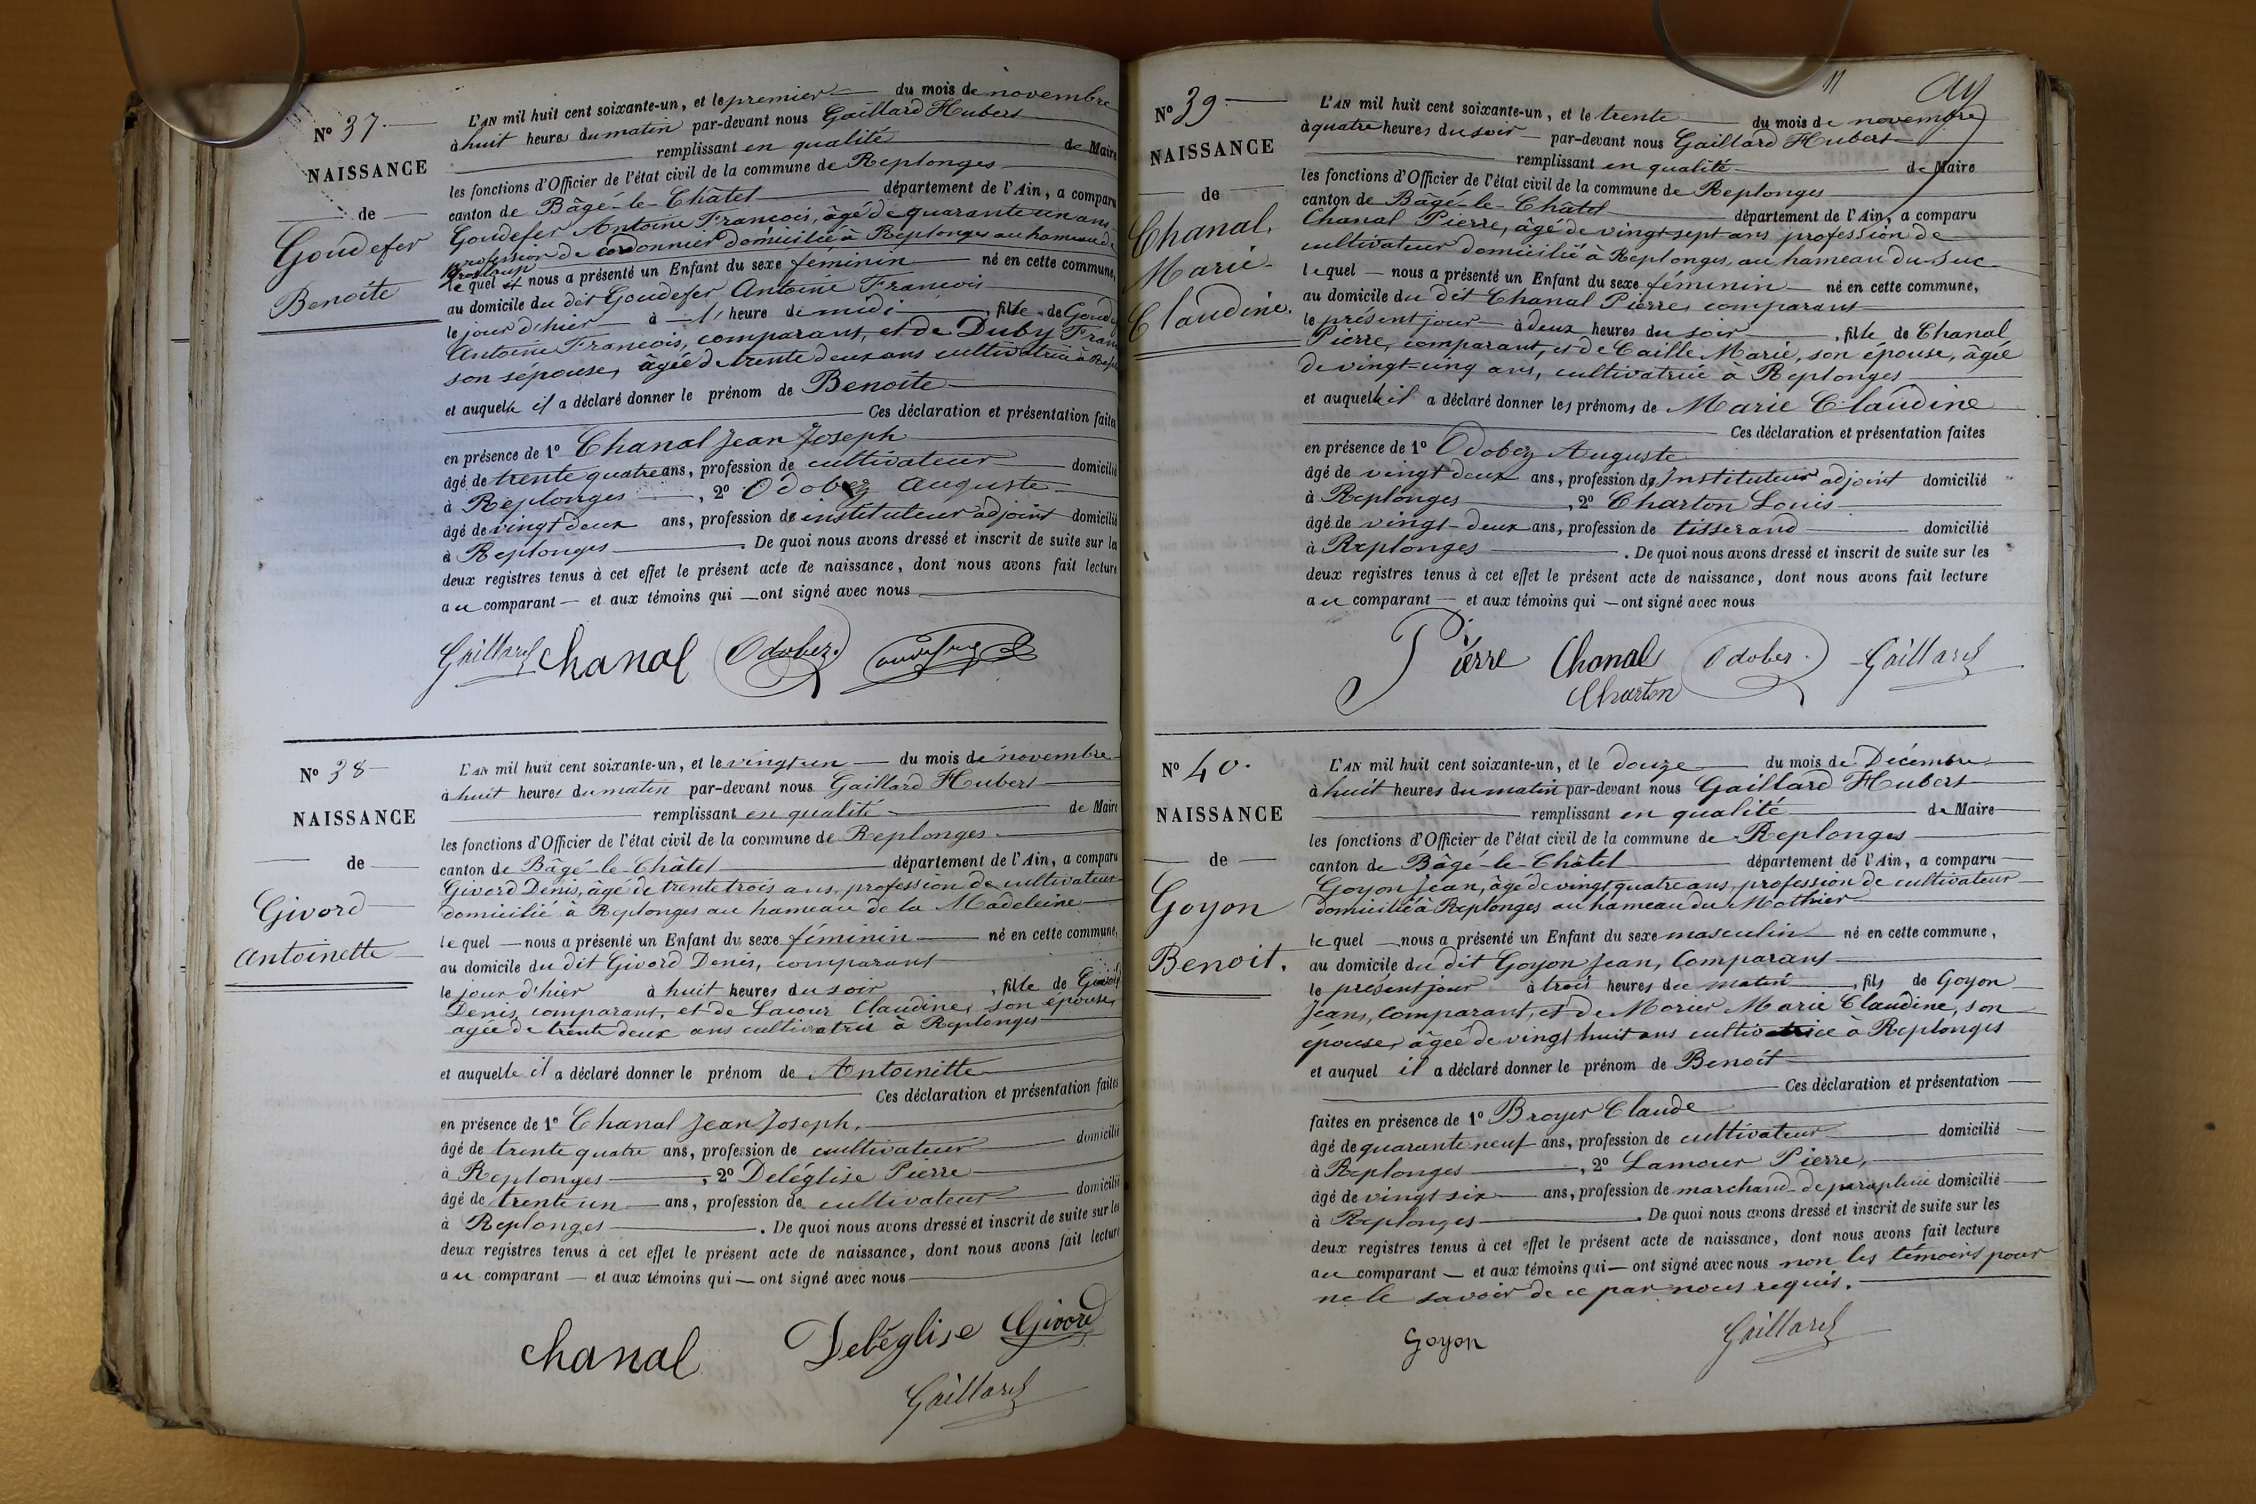 N° 37
NAISSANCE
de
Goudefer
Benoite
L'AN mil huit cent soixante-un, et le premier du mois de novembre
à huit heures du matin par-devant nous Gaillard Hubert
remplissant en qualité de Maire
les fonctions d'Officier de l'état civil de la commune de Replonges
canton de Bâgé-le-Châtel département de l'Ain, a comparu
Goudefer Antoine François, âgé de quarante un ans
profession de cordonnier domicilié à Replonges au hameau de
le quel nous a présenté un Enfant du sexe feminin né en cette commune,
au domicile du dit Goudefer Antoine François
le jour d'hier à l'heure de midi, fille de
Antoine François, comparant, et de Duby
son sépouse, âgée de trente deux ans cultivatrice à
et auquelle il a déclaré donner le prénom de Benoite
Ces déclaration et présentation faites
en présence de 1° Chanal Jean Joseph
âgé de trente quatre ans, profession de cultivateur domicilié
à Replonges, 2° Odobez Auguste
âgé de vingt deux ans, profession de instituteur adjoint domicilié
à Replonges. De quoi nous avons dressé et inscrit de suite sur les
deux registres tenus à cet effet le présent acte de naissance, dont nous avons fait lecture
au comparant et aux témoins qui ont signé avec nous
Gaillard Chanal Odobez
N° 38
NAISSANCE
de
Givord
Antoinette
L'AN mil huit cent soixante-un, et le vingt un du mois de novembre
à huit heures du matin par-devant nous Gaillard Hubert
remplissant en qualité de Maire
les fonctions d'Officier de l'état civil de la commune de Replonges
canton de Bâgé-le-Châtel département de l'Ain, a comparu
Givord Denis, âgé de trente trois ans, profession de cultivateur
domicilié à Replonges au hameau de la Madeleine
le quel nous a présenté un Enfant du sexe féminin né en cette commune,
au domicile du dit Givord Denis, comparant
le jour d'hier à huit heures du soir, fille de Givord
Denis, comparant, et de Lacour Claudine, son épouse,
agée de trente deux ans cultivatrice à Replonges
et auquelle il a déclaré donner le prénom de Antoinette
Ces déclaration et présentation faites
en présence de 1° Chanal Jean Joseph,
âgé de trente quatre ans, profession de cultivateur domicilié
à Replonges, 2° Deléglise Pierre
âgé de trente un ans, profession de cultivateur domicilié
à Replonges. De quoi nous avons dressé et inscrit de suite sur les
deux registres tenus à cet effet le présent acte de naissance, dont nous avons fait lecture
au comparant et aux témoins qui ont signé avec nous
Chanal Deléglise Givord
Gaillard
11
N° 39
NAISSANCE
de
Chanal,
Marie
Claudine.
L'AN mil huit cent soixante-un, et le trente du mois de novembre
à quatre heures du soir par-devant nous Gaillard Hubert
remplissant en qualité de Maire
les fonctions d'Officier de l'état civil de la commune de Replonges
canton de Bâgé-le-Châtel département de l'Ain, a comparu
Chanal Pierre, âgé de vingt sept ans profession de
cultivateur domicilié à Replonges, au hameau du Suc
lequel nous a présenté un Enfant du sexe féminin né en cette commune,
au domicile du dit Chanal Pierre, comparant
le présent jour à deux heures du soir, fille de Chanal
Pierre, comparant, et de Caille Marie, son épouse, âgée
de vingt-cinq ans, cultivatrice à Replonges
et auquelle il a déclaré donner les prénoms de Marie Claudine
Ces déclaration et présentation faites
en présence de 1° Odobez Auguste
âgé de vingt deux ans, profession de Instituteur adjoint domicilié
à Replonges, 2° Charton Louis
âgé de vingt-deux ans, profession de tisserand domicilié
à Replonges. De quoi nous avons dressé et inscrit de suite sur les
deux registres tenus à cet effet le présent acte de naissance, dont nous avons fait lecture
au comparant et aux témoins qui ont signé avec nous
Pierre Chanal Odobez Gaillard
Charton
N° 40.
NAISSANCE
de
Goyon
Benoit.
L'AN mil huit cent soixante-un, et le douze du mois de Décembre
à huit heures du matin par-devant nous Gaillard Hubert
remplissant en qualité de Maire
les fonctions d'Officier de l'état civil de la commune de Replonges
canton de Bâgé-le-Châtel département de l'Ain, a comparu
Goyon Jean, âgé de vingt quatre ans, profession de cultivateur
domicilié à Replonges au hameau du Mothier
le quel nous a présenté un Enfant du sexe masculin né en cette commune,
au domicile du dit Goyon Jean, Comparant
le présent jour à trois heures du matin, fils de Goyon
Jean, Comparant, et de Morier Marie Claudine, son
épouse, âgée de vingt huit ans cultivatrice à Replonges
et auquel il a déclaré donner le prénom de Benoit
Ces déclaration et présentation
faites en présence de 1° Broyer Claude
âgé de quarante neuf ans, profession de cultivateur domicilié
à Replonges, 2° Lamour Pierre,
âgé de vingt six ans, profession de marchand de parapluie domicilié
à Replonges. De quoi nous avons dressé et inscrit de suite sur les
deux registres tenus à cet effet le présent acte de naissance, dont nous avons fait lecture
au comparant et aux témoins qui ont signé avec nous non les témoins pour
ne le savoir de ce par nous requis.
Goyon Gaillard